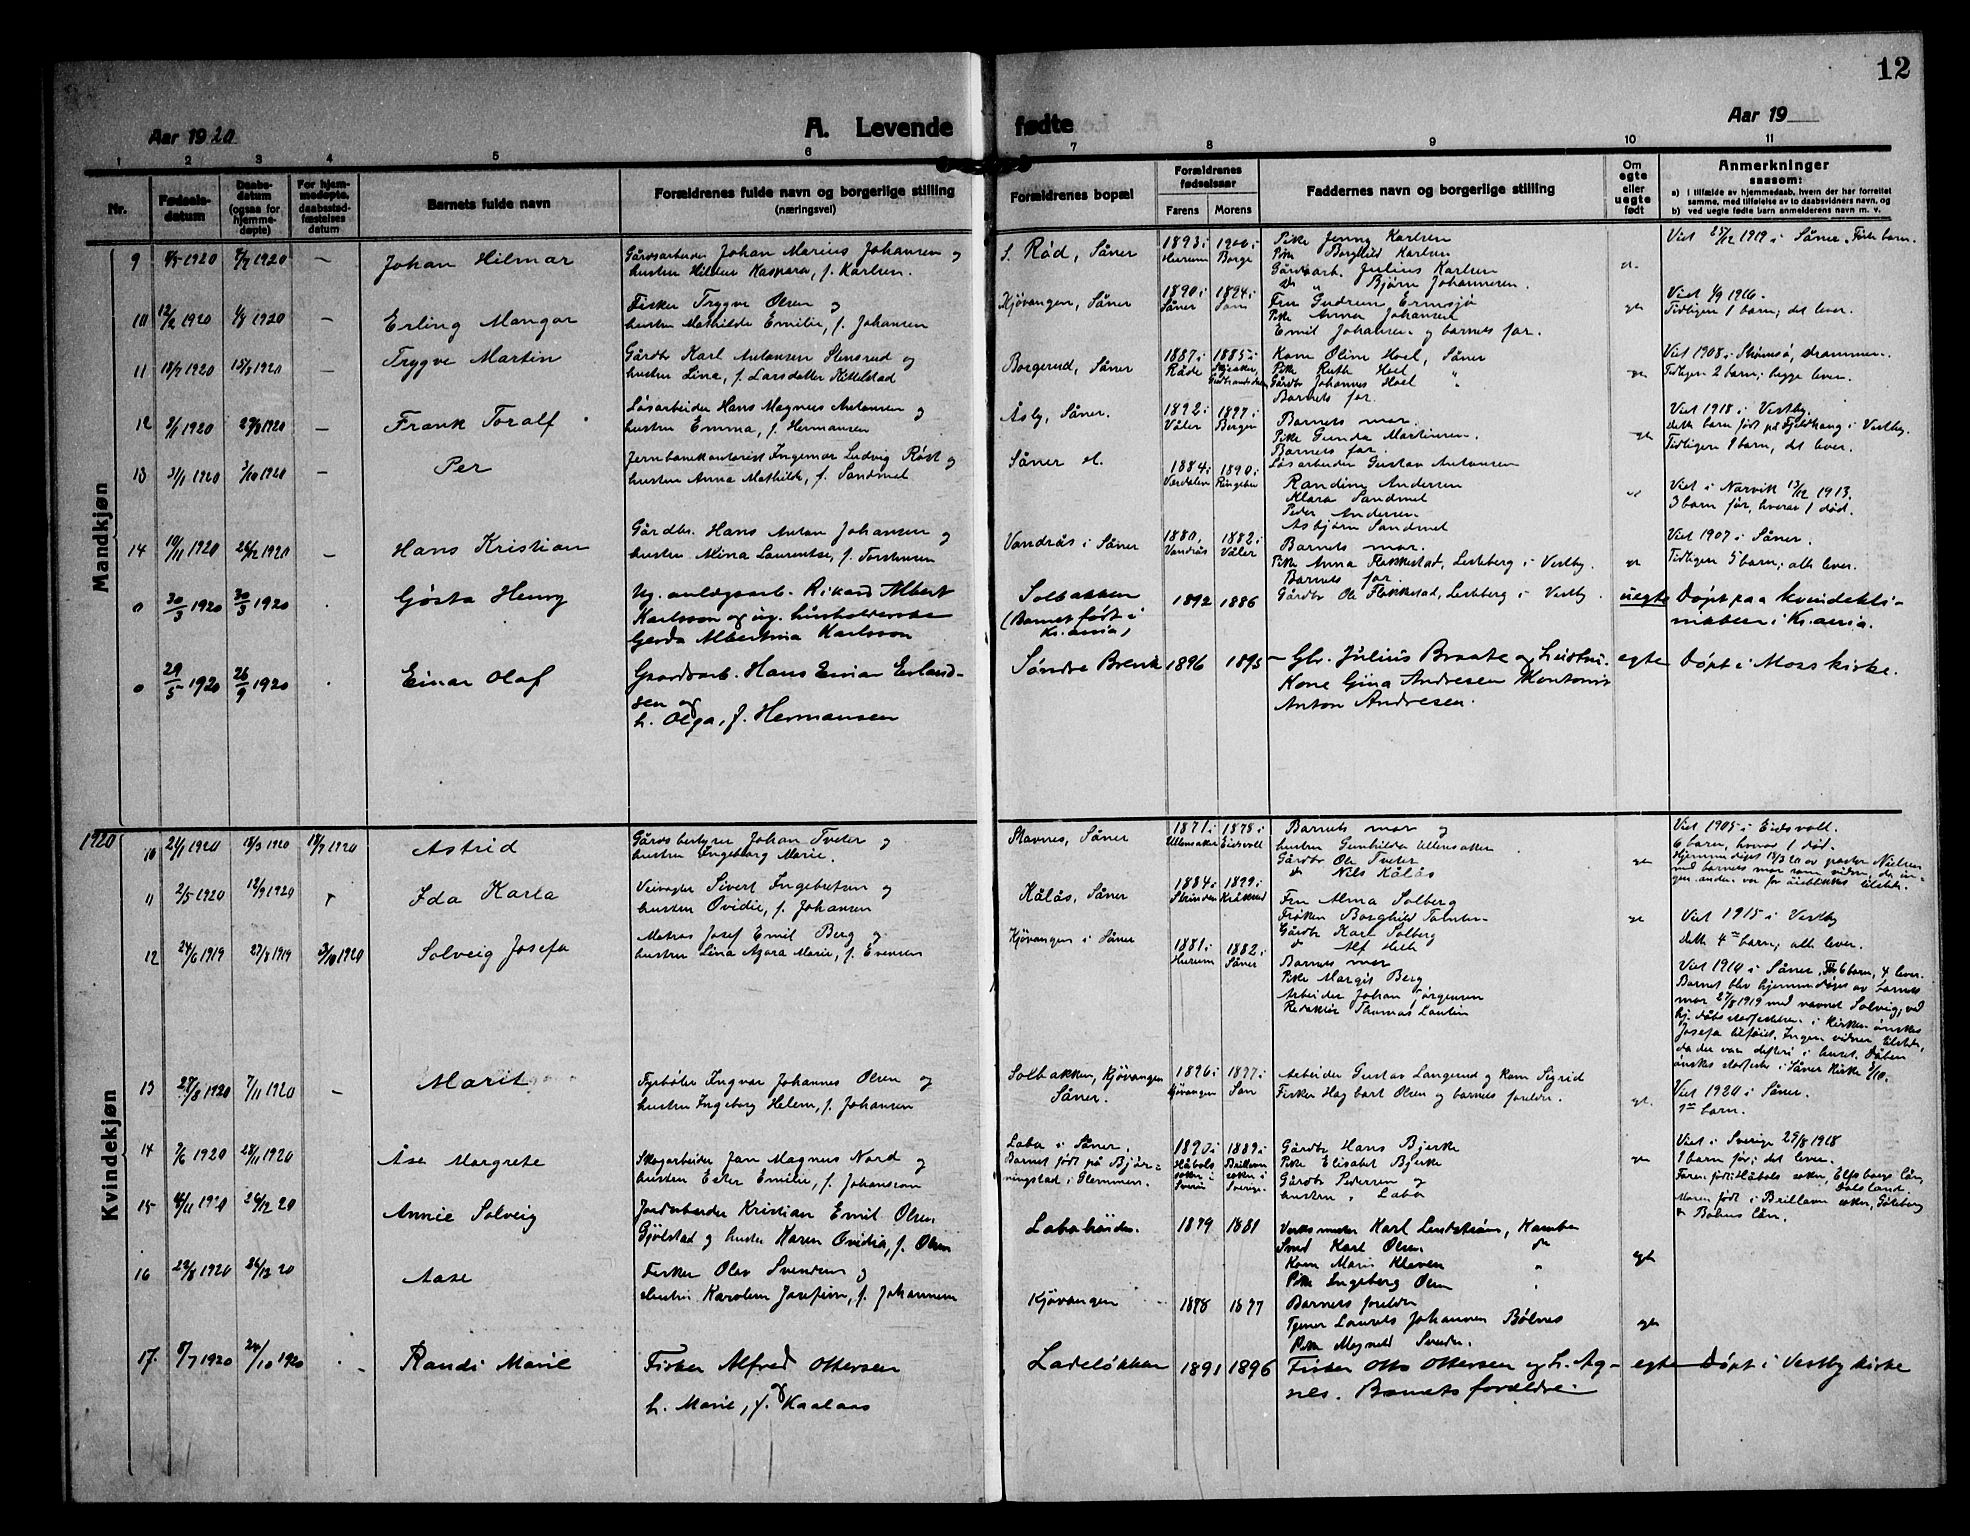 12
Aar 1920
A. Levende fødte
Aar 19
1 2 3 4 5 6 7 8 9 10 11
Nr.
Fødsels-
datum
Daabs-
datum
(ogsaa for
hjemme-
døpte)
For hjem-
medøpte,
daabsstad-
fæstelses
datum
Barnets fulde navn
Forældrenes fulde navn og borgerlige stilling
(næringsvei)
Forældrenes bopæl
Forældrenes
fødselsaar
Farens Morens
Faddernes navn og borgerlige stilling
Om
egte
eller
uegte
født
Anmerkninger
saasom:
a) i tilfælde av hjemmedaab, hvem der har forrettet
samme, med tilføielse av to daabsvidners navn, og
b) ved uegte fødte barn anmelderens navn m. v.
Mandkjøn
9 1920 1920 — Johan Hilmar
Gårdsarbeider Johan Marius Johansen og
hustru Kaspara, f. Karlsen.
S. Rød, Såner
1893 i Hurum
1900 i Borge
Pike Jenny Karlsen
Pike Borghild Karlsen
Gårdsarb. Julius Karlsen
do " Bjørn Johannesen.
Viet 25/12 1919 i Såner. Første barn.
10 12/2 1920 1/8 1920 — Erling Mangor
Fisker Trygve Olsen og
hustru Mathilde Emilie, f. Johansen
Kjøvangen, Såner
1890 i Såner
1894 i Son
Fru Gudrun Ermesjø
Pike Anna Johansen
Emil Johansen og barnets far.
Viet 1/9 1916.
Tidligere 1 barn; det lever.
11 18/7 1920 15/8 1920 — Trygve Martin
Gårdbr Karl Antonsen Stensrud og
hustru Lina, f. Larsdatter Kittelstad
Borgerud, Såner
1887 i Råde
1885 i Skjeaker, Gudbrandsdalen
Kone Oline Hoel, Såner
Pike Ruth Hoel "
Gårdbr Johannes Hoel "
Barnets far.
Viet 1908 i Strømsø, Drammen.
Tidligere 2 barn; begge lever.
12 3/1 1920 29/8 1920 — Frank Toralf
Løsarbeider Hans Magnus Antonsen og
hustru Emma, f. Hermansen
Åsly, Såner.
1892 i Våler
1897 i Bergen
Barnets mor.
Pike Gunda Martinsen.
Barnets far.
Løsarbeider Gustav Antonsen
Viet 1918 i Vestby.
dette barn født på Fjeldhaug i Vestby.
Tidligere 1 barn, det lever.
13 31/1 1920 3/10 1920 — Per
Jernbanekontorist Ingemar Ludvig Røst og
hustru Anna Mathilde, f. Sandmel
Såner st.
1884 i Verdalen
1890 i Ringebu
Randine Andersen
Klara Sandmel
Peder Andersen
Asbjørn Sandmel
Viet i Narvik 13/12 1913.
3 barn før, hvorav 1 død.
14 10/11 1920 26/12 1920 — Hans Kristian
Gårdbr. Hans Anton Johansen og
hustru Mina Laurentse, f. Torstensen
Vandrås i Såner
1880, Vandrås
1882 i Våler
Barnets mor.
Pike Anna Flakkestad, Lesteberg i Vestby.
Barnets far.
Gårdbr Ole Flakkestad, Lesteberg i Vestby
Viet 1907 i Såner.
Tidligere 5 barn; alle lever.
0 30/3 1920 30/3 1920 . Gösta Henry
Ug. anlægsarb. Rikard Albert
Karlsson og ug. husholderske
Gerda Albertina Karlsson
Solbakken
(Barnet født i
Kr.ania)
1892 1886
uegte
Døpt paa kvindekli-
nikken i Kr.ania.
0 29/5 1920 26/9 1920 . Einar Olaf
Gaardsarb. Hans Einar Erland-
sen og
h. Olga, f. Hermansen
Søndre Brevik 1896 1895
Gbr. Julius Braate og hustru.
Kone Gina Andresen
Anton Andresen.
egte
Døpt i Moss kirke.
1920
Kvindekjøn
10 21/1 1920 18/3 1920 18/7 1920 Astrid
Gårdsbestyrer Johan Tveter og
hustru Ingeborg Marie.
Stavnes, Såner
1871 i Ullensaker
1878 i Eidsvoll
Barnets mor og
hustru Gunhilda Ullensaker
Gårdbr Ole Tveter
do Nils Kålås
Viet 1905 i Eidsvoll.
6 barn, hvorav 1 død.
11 2/5 1920 12/9 1920 Ida Karla
Veivogter Sivert Ingebretsen og
hustru Ovidie, f. Johansen
Kålås, Såner
1884 i Strinden
1899 i Kråkstad
Fru Alma Solberg
Frøken Borghild
Gårdbr Karl Solberg
do Alf
Viet 1915 i Vestby
dette 4de barn; alle lever.
12 24/6 1919 27/8 1919 3/10 1920 Solveig Josefa
Matros Josef Emil Berg og
hustru Lina Agora Marie, f. Evensen
Kjøvangen i Såner
1881 i Hurum
1882 i Såner
Barnets mor
Pike Margit Berg
Arbeider Johan Jørgensen
Redaktør Thomas
Viet 1910 i Såner. 6 barn, 4 lever.
Barnet blev hjemmedøpt av barnets
mor 27/8 1919 med navnet Solveig; ved
Josefa tilføiet. Ingen vidner tilstede,
da der var difteri i huset. Dåben
ønskes stadfestet i Såner kirke 3/10.
13 27/8 1920 7/11 1920 — Marit
Fyrbøter Ingvar Johannes Olsen og
hustru Ingeborg Helene, f. Johansen
Solbakken, Kjøvangen
Såner.
1896 i Kjøvangen
1897 i Son
Arbeider Gustav Langerud og kone Sigrid
Fisker Hagbart Olsen og barnets forældre.
egt.
Viet 1920 i Såner.
1ste barn.
14 7/6 1920 28/11 1920 Åse Margrete
Skogarbeider Jan Magnus Nord og
hustru Ester Emilie, f. Johansson
Laba i Såner.
Barnet født på Bjør-
ningstad i Glemmen.
1897 i Håbols sokn i Sverige
1889 i sokn i Sverige.
Gårdbr Hans Bjerke
Pike Elisabet Bjerke
Gårdbr Pedersen og
hustru " Laba
Viet i Sverige 29/8 1918
1 barn før; det lever.
Faren født i Håbols sokn, Elfsborgs län,
Dalsland.
Moren født i sokn, Göteborg
& Bohus län.
15 1920 26/12 20 Annie Solveig
Jordarbeider Kristian Emil Olsen
Gjølstad og hustru Karen Ovidia, f. Olsen
Labahöiden.
1879 1881
Verksmester Karl Lindstrøm, Kambo
Smed Karl Olsen do
Kone Marie Kleven "
Pike Ingeborg Olsen "
egt
16 22/8 1920 26/12 20 Aase
Fisker Olav Svendsen og
hustru Karoline Josefine, f. Johannesen
Kjøvangen
1878 1877
Barnets forældre
Tjener Laurits Johannesen Bølnes
Pike Magnild Svendsen.
egt
17. 8/7 1920 24/10 1920 . Randi Marie
Fisker Alfred Ottersen
h. Marie, f. Kaalaas
Ladeløkken
1891 1896
Fisker Otto Ottersen og h. Ag-
nes. Barnets forældre
egte
Døpt i Vestby kirke